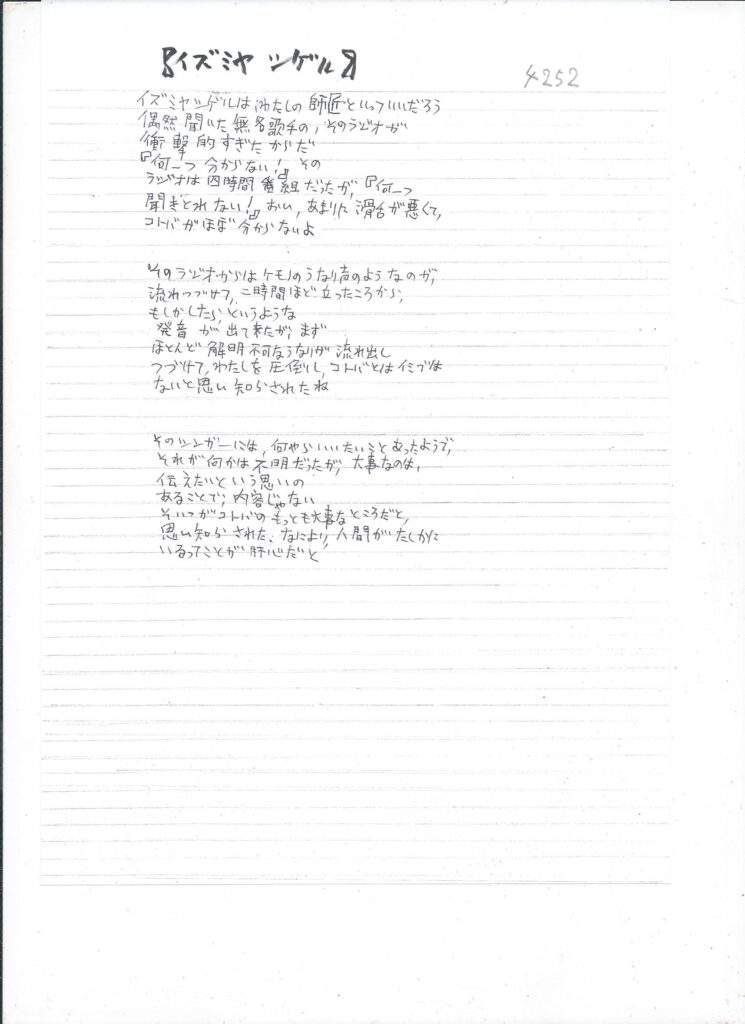 『イズミヤ ツゲル』
4252
イズミヤツゲルはわたしの師匠といっていいだろう
偶然聞いた無名歌手の、そのラジオが
衝撃的すぎたからだ
『何一つ分からない！』その
ラジオは四時間番組だったが、『何一つ
聞きとれない！』おい、あまりに滑舌が悪くて、
コトバがほぼ分からないよ
そのラジオからはケモノのうなり声のようなのが、
流れつづけて、二時間ほど立ったころから、
もしかしたら、というような
発音が出て来たが、まず
ほとんど解明不可なうなりが流れ出し
つづけて、わたしを圧倒し、コトバとはイミでは
ないと思い知らされたね
そのシンガーには、何やらいいたいことあったようで、
それが何かは不明だったが、大事なのは、
伝えたいという思いの
あることで、内容じゃない
そいつがコトバのもっとも大事なところだと、
思い知らされた、なにより、人間がたしかに
いるってことが肝心だと